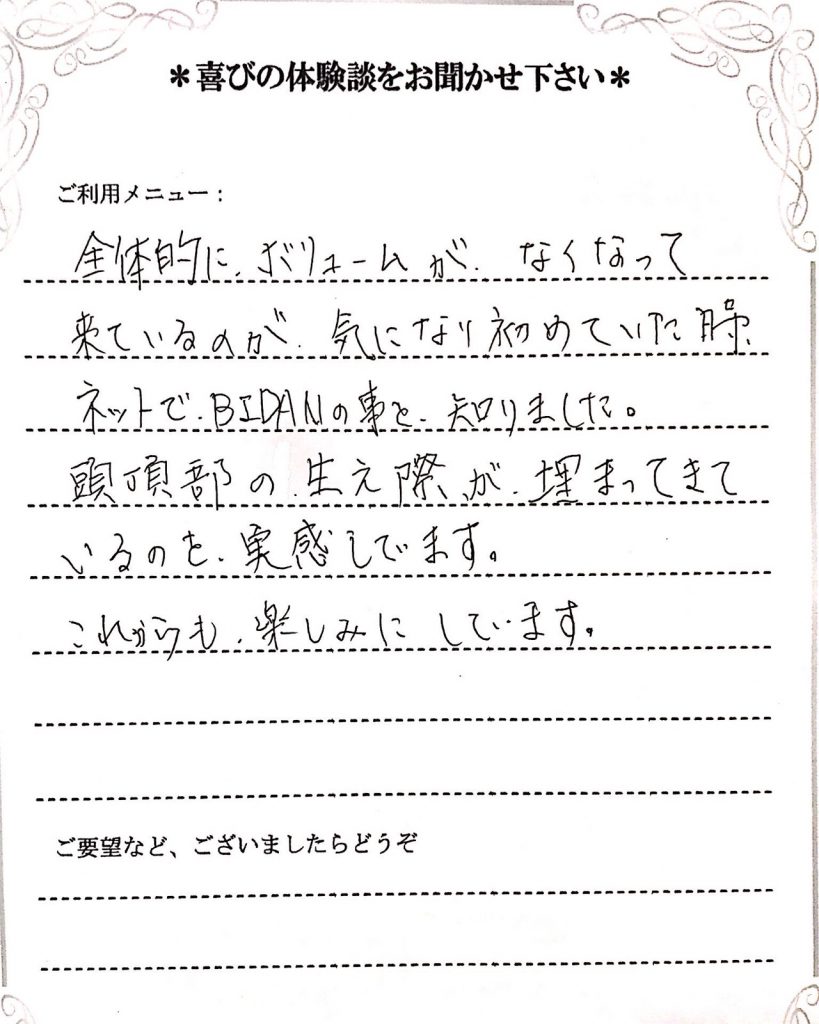 ＊喜びの体験談をお聞かせ下さい＊
ご利用メニュー：
全体的に、ボリュームが、なくなって
来ているのが、気になり初めていた時、
ネットで、BIDANの事を、知りました。
頭頂部の、生え際、が、埋まってきて
いるのを、実感してます。
これからも、楽しみに しています。
ご要望など、ございましたらどうぞ